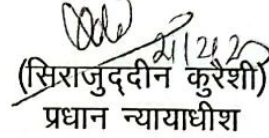 (सिराजुद्दीन कुरैशी)
प्रधान न्यायाधीश